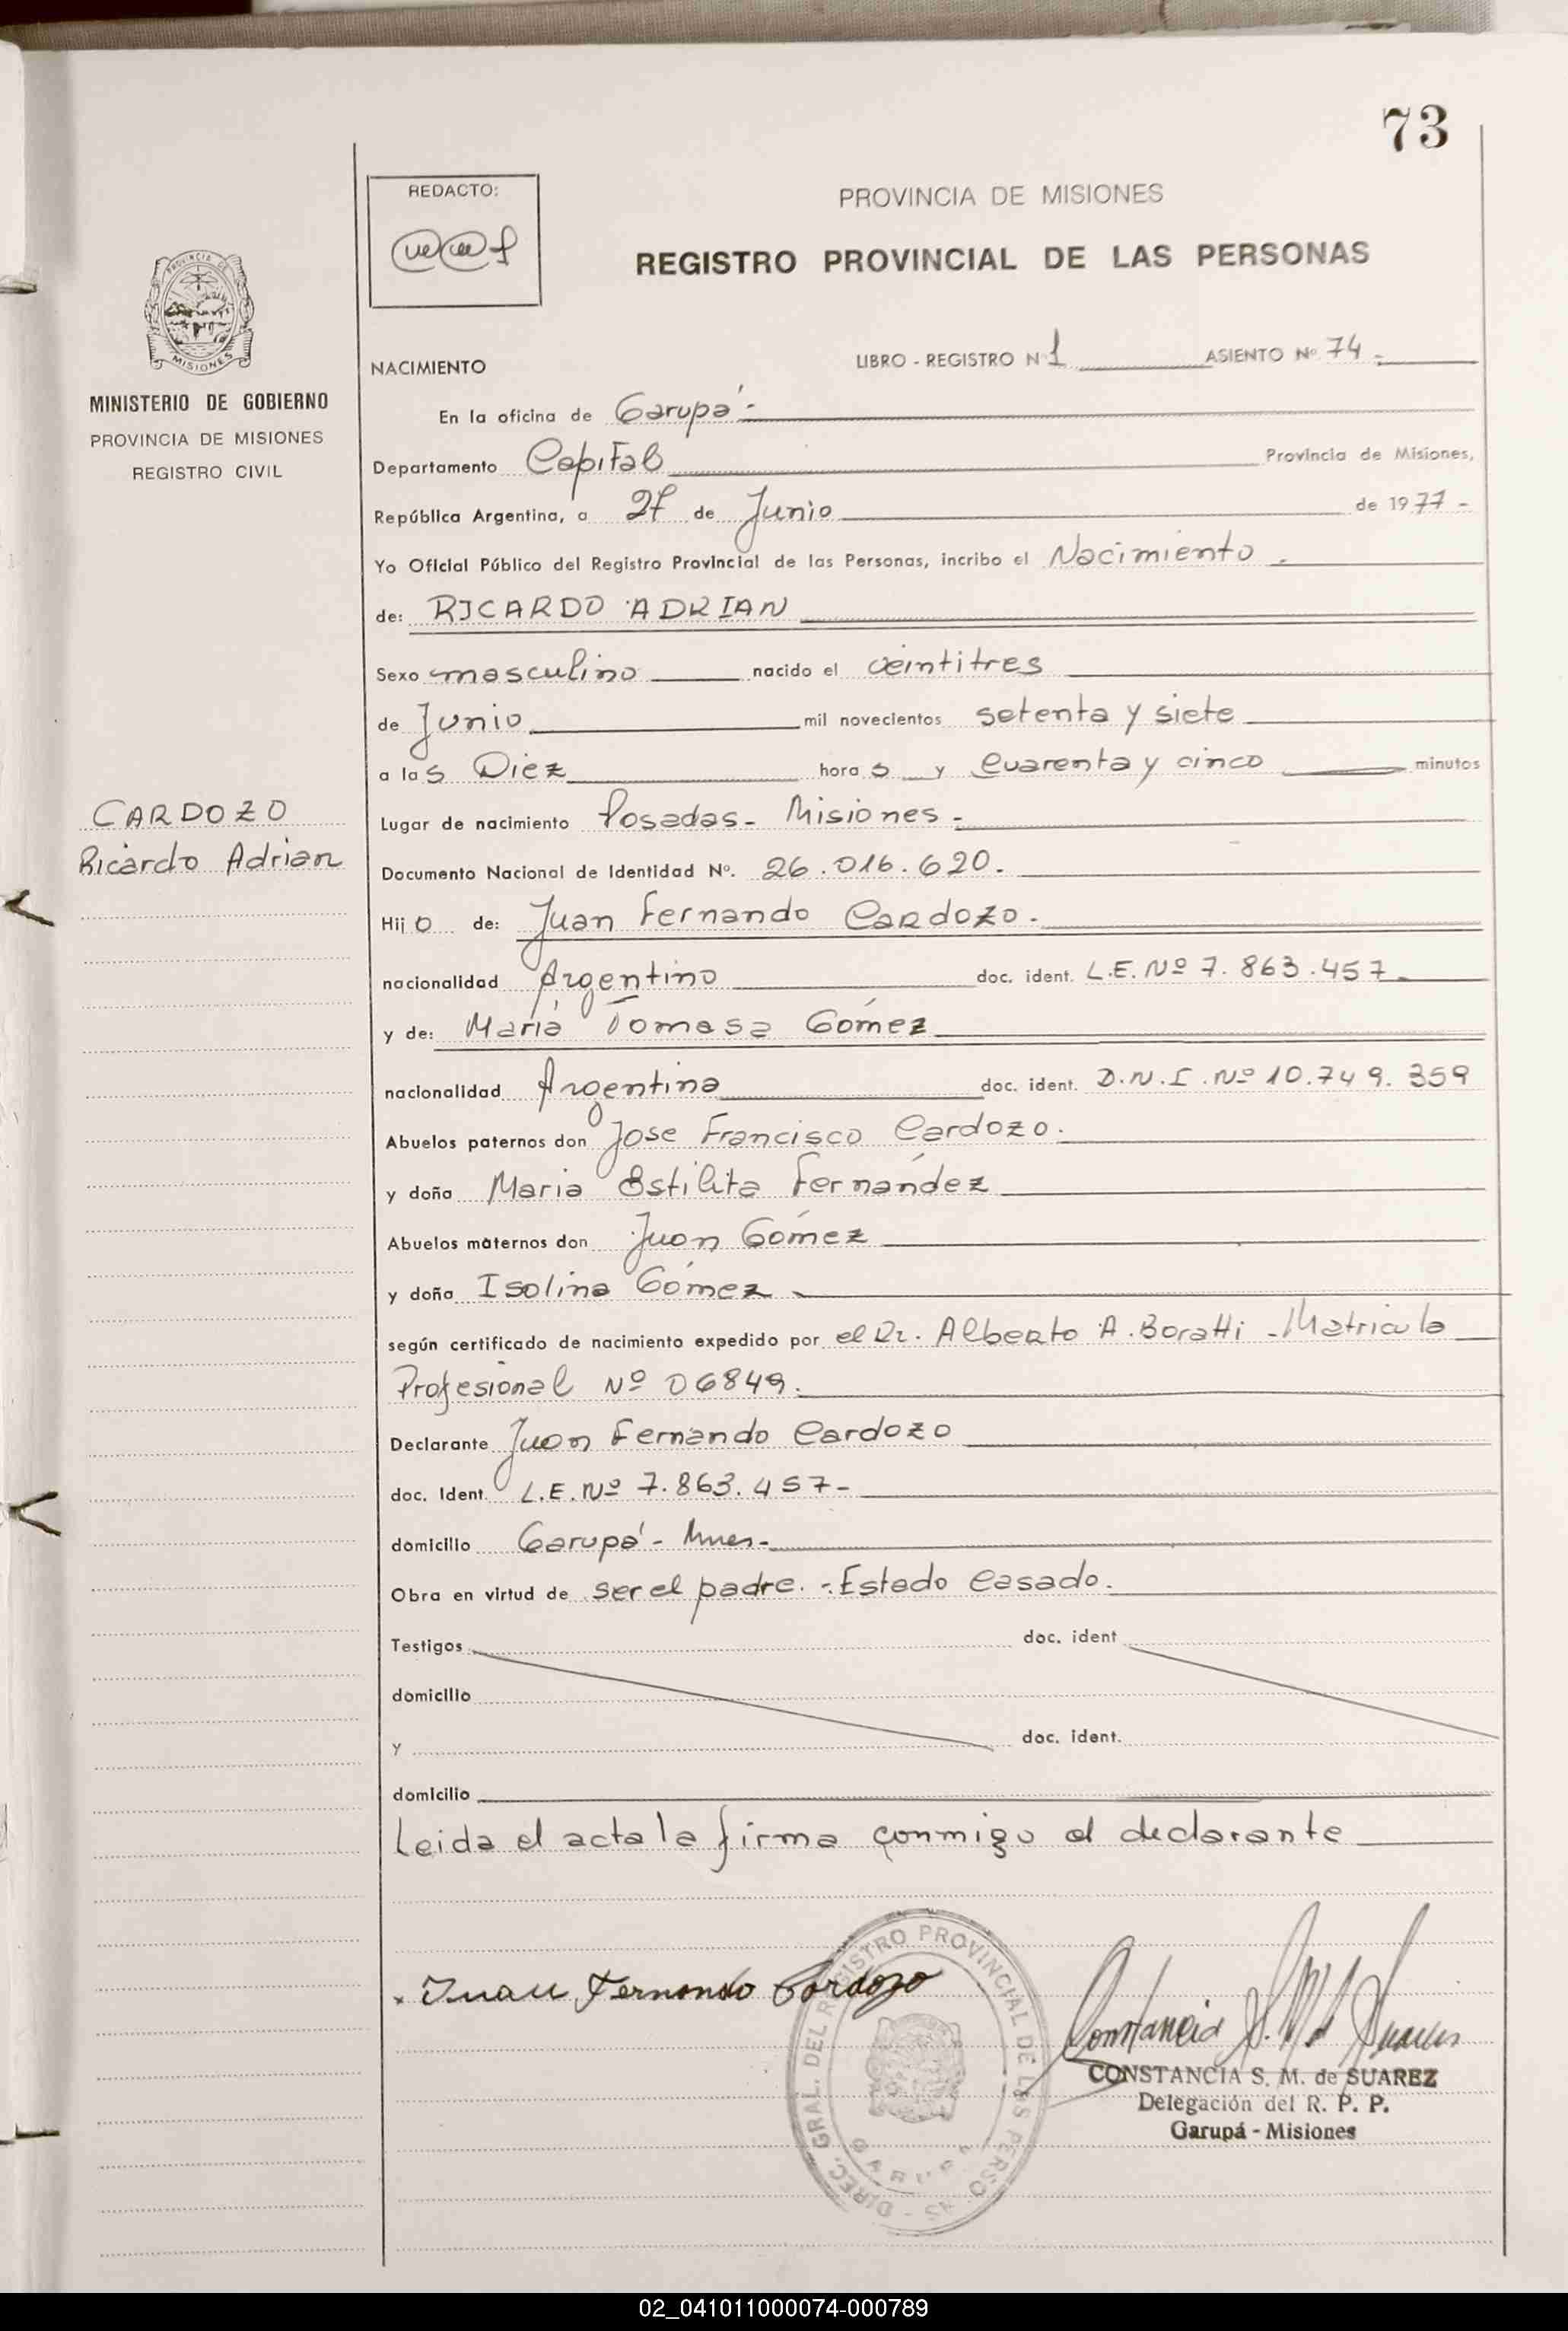 73
REDACTO:
PROVINCIA DE MISIONES
REGISTRO PROVINCIAL DE LAS PERSONAS
MISIONES
MINISTERIO DE GOBIERNO
PROVINCIA DE MISIONES
REGISTRO CIVIL
CARDOZO
Ricardo Adrian
NACIMIENTO LIBRO - REGISTRO Nº 1 ASIENTO Nº 74 -
En la oficina de Garupá -
Departamento Capital Provincia de Misiones,
República Argentina, a 27 de Junio de 1977 -
Yo Oficial Público del Registro Provincial de las Personas, incribo el Nacimiento -
de: RICARDO ADRIAN
Sexo masculino nacido el veintitres
de Junio mil novecientos setenta y siete
a las Diez horas y cuarenta y cinco minutos
Lugar de nacimiento Posadas - Misiones -
Documento Nacional de Identidad Nº. 26.016.620.
Hijo de: Juan Fernando Cardozo.
nacionalidad Argentino doc. ident. L.E. Nº 7.863.457 -
y de: María Tomasa Gómez
nacionalidad Argentina doc. ident. D.N.I. Nº 10.749.359
Abuelos paternos don Jose Francisco Cardozo.
y doña Maria Estilita Fernández
Abuelos maternos don Juan Gómez
y doña Isolina Gómez
según certificado de nacimiento expedido por el Dr. Alberto A. Boratti - Matricula
Profesional Nº 06849.
Declarante Juan Fernando Cardozo
doc. Ident. L.E. Nº 7.863.457 -
domicilio Garupá - Mnes -
Obra en virtud de ser el padre. - Estado casado.
Testigos doc. ident
domicilio
y doc. ident.
domicilio
Leida el acta la firma conmigo el declarante
Juan Fernando Cardozo
DIREC. GRAL. DEL REGISTRO PROVINCIAL DE LAS PERSONAS
GARUPA
Constancia S. M. de Suarez
CONSTANCIA S. M. de SUAREZ
Delegación del R. P. P.
Garupá - Misiones
02_041011000074-000789